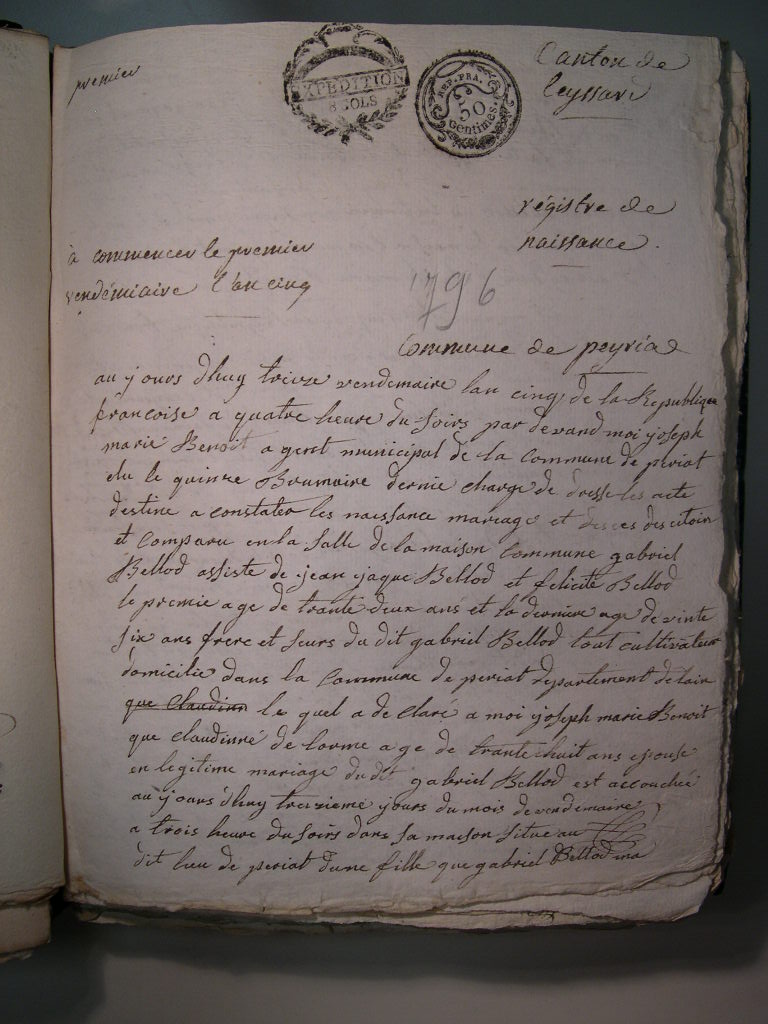 premier
EXPEDITION
8 SOLS
REP. FRA.
50
Centimes.
Canton de
Leyssard
régistre de
naissance.
à commencer le premier
vendémiaire l'an cinq
1796
Commune de peyriat
au jours d'huy treize vendemaire lan cinq de la Republique
francoise a quatre heure du soirs par devand moi joseph
marie Benoit agent municipal de la Commune de periat
elu le quinze Brumaire dernié chargé de dresse les acte
destine a constater les naissance mariage et desces des citoin
et Comparu en la salle de la maison Commune gabriel
Bellod assiste de jean jaque Bellod et felicité Bellod
le premie age de trante deux ans et la derniere age de vinte
six ans frere et seurs du dit gabriel Bellod tout cultivateur
domicilie dans la Commune de periat departement de lain
que Claudine
le quel a de claré a moi joseph marie Benoit
que claudinne de lorme age de trante huit ans epouse
en legitime mariage du dit gabriel Bellod est accouchée
au jours d'huy treizieme jours du mois de vendemaire
a trois heure du soirs dans sa maison situe au
dit lieu de periat d'une fille que gabriel Bellod ma